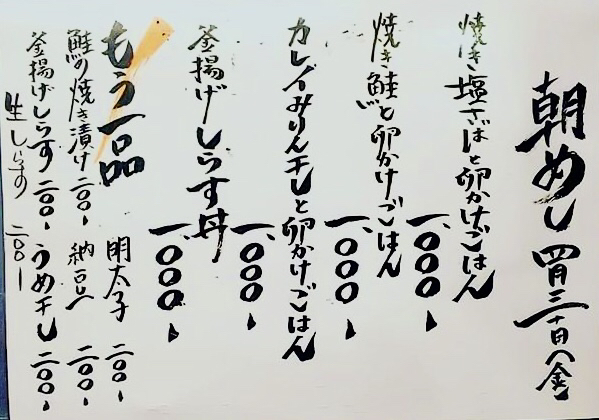 朝めし 四月三十日(金)
焼き塩さばと卵かけごはん
一、〇〇〇、
焼き鮭と卵かけごはん
一、〇〇〇、
カレイみりん干しと卵かけごはん
一、〇〇〇、
釜揚げしらす丼
一、〇〇〇、
もう一品
明太子 二〇〇、
鮭の焼き漬け 二〇〇、
納豆 二〇〇、
釜揚げしらす 二〇〇、
うめ干し 二〇〇、
生しらす 二〇〇、